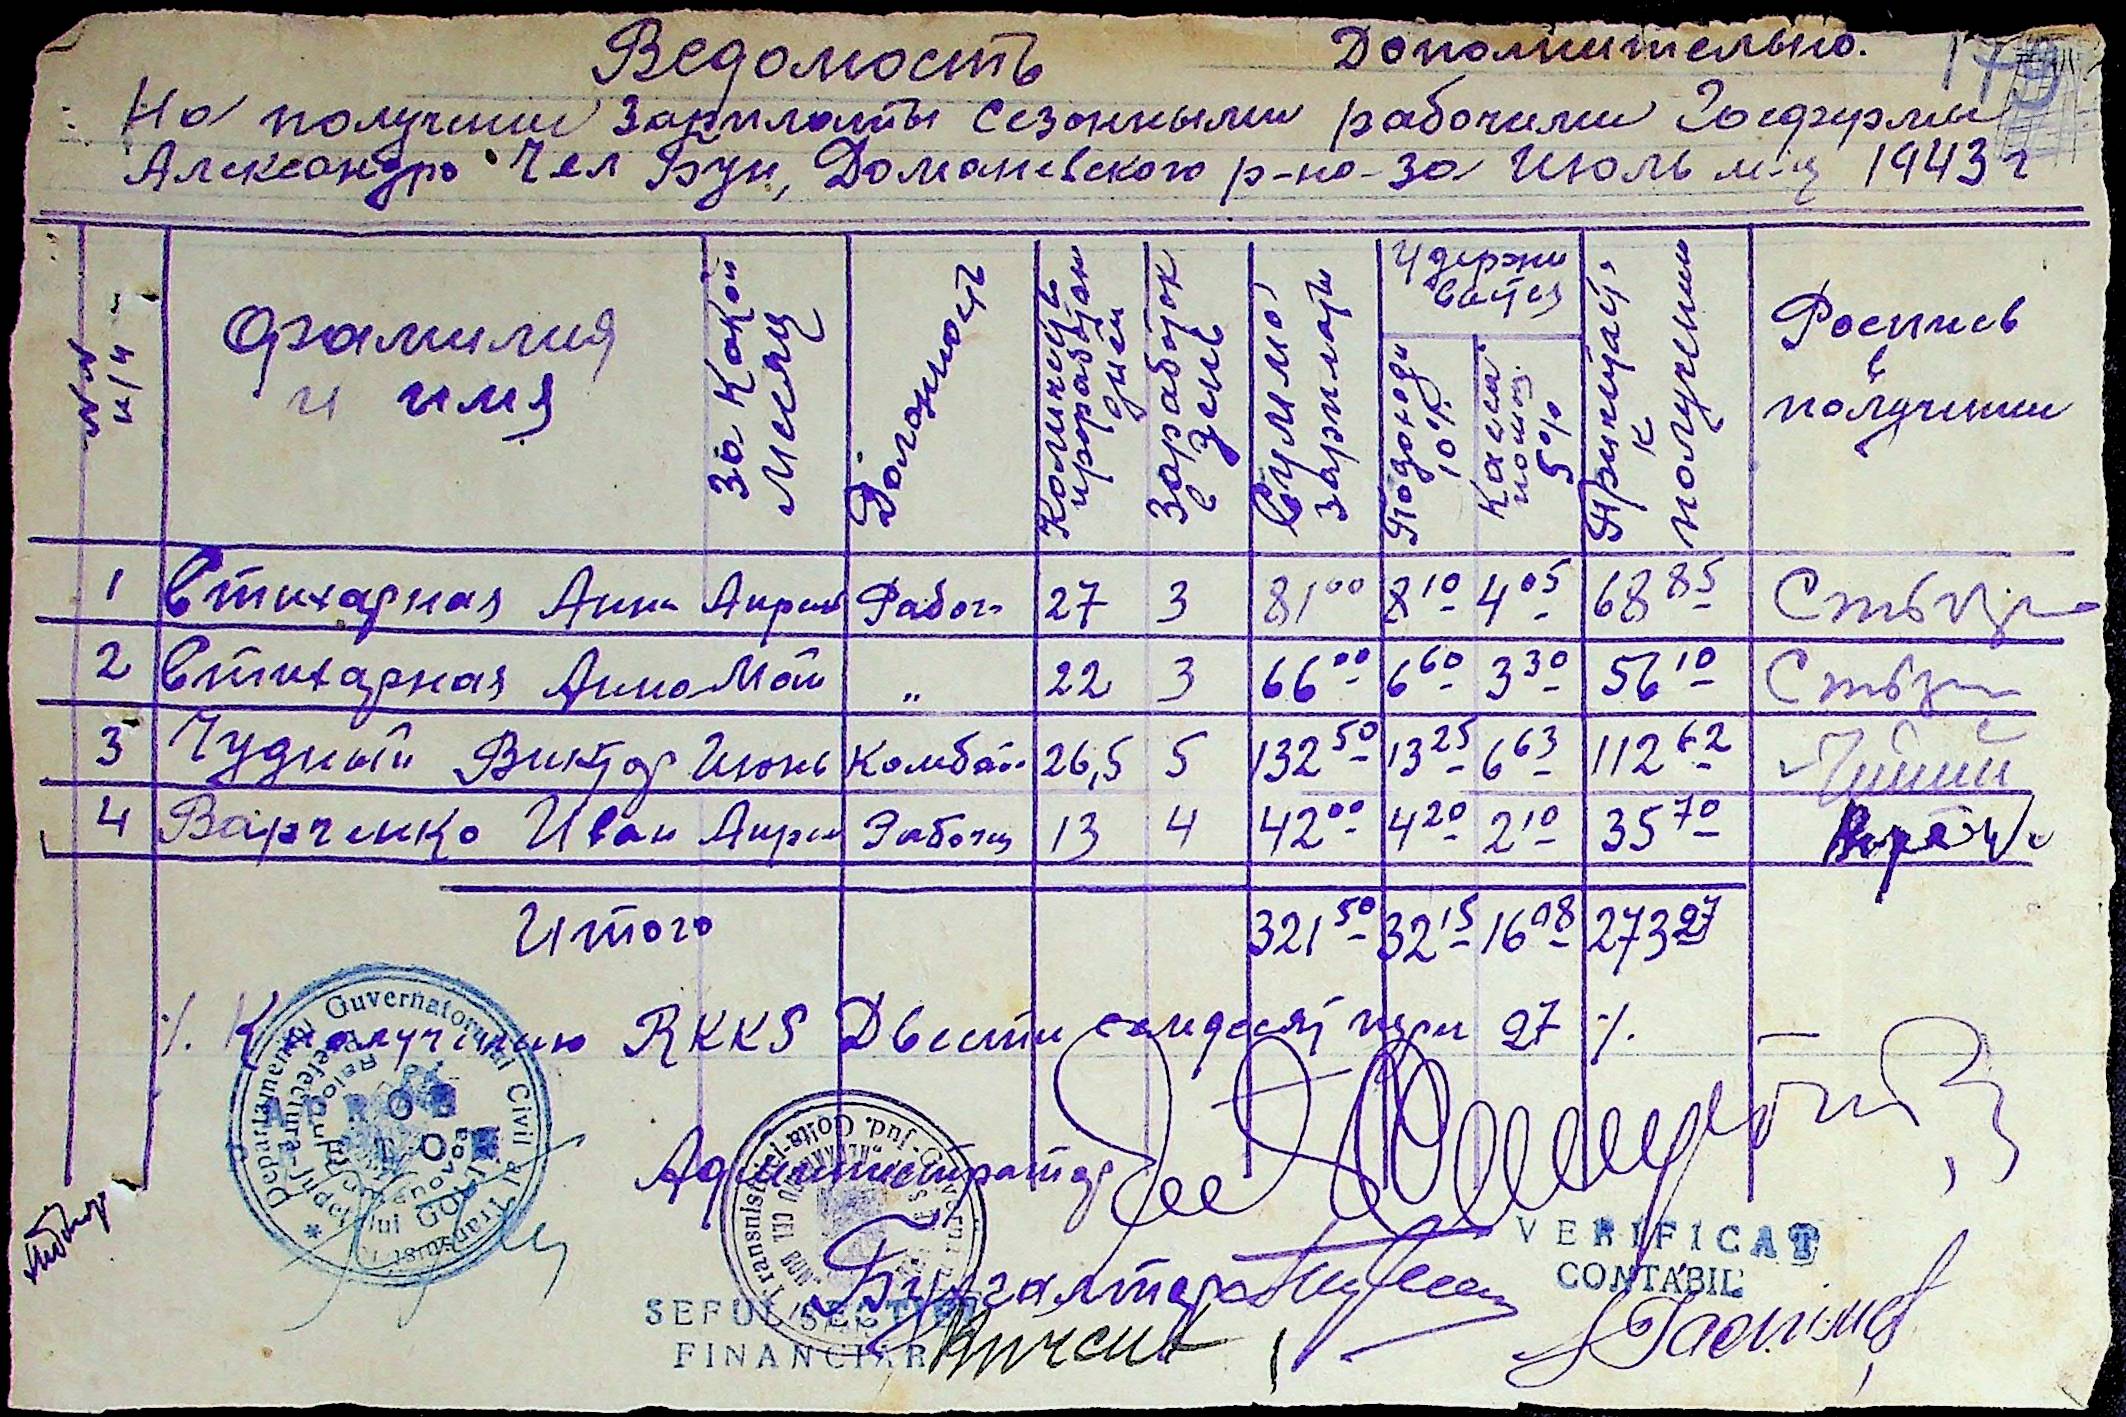 Ведомость Дополнительно.
179
На получение зарплаты сезонными рабочими Госфермы
Александр Чел Бун, Доманевского р-на за Июль м-ц 1943 г
№№ п/п
Фамилия и имя
За какой месяц
Должность
Количеств проработан дней
Заработок в день
Сумма зарплаты
Удержи вается
Подоходн 10%
Кассен. помощ. 5%
Причитает. к получению
Роспись в получении
1 Стихарная Анна Апрель Рабоч 27 3 81 00 8 10 4 05 68 85
2 Стихарная Анна Май " 22 3 66 00 6 60 3 30 56 10
3 Чудный Виктор Июнь Комбай 26,5 5 132 50 13 25 6 63 112 62
4 Варченко Иван Апрел Рабочий 13 4 42 00 4 20 2 10 35 70
Итого 321 50 32 15 16 08 273 27
К получению RKKS Двести семдесят три 27
Departamentul Guvernatorul Civil al Transnistriei
Prefectura Jud.
APROB
Администратор
Jud. Golta
Бухгалтер
VERIFICAT
CONTABIL
SEFUL SECTIEI
FINANCIAR